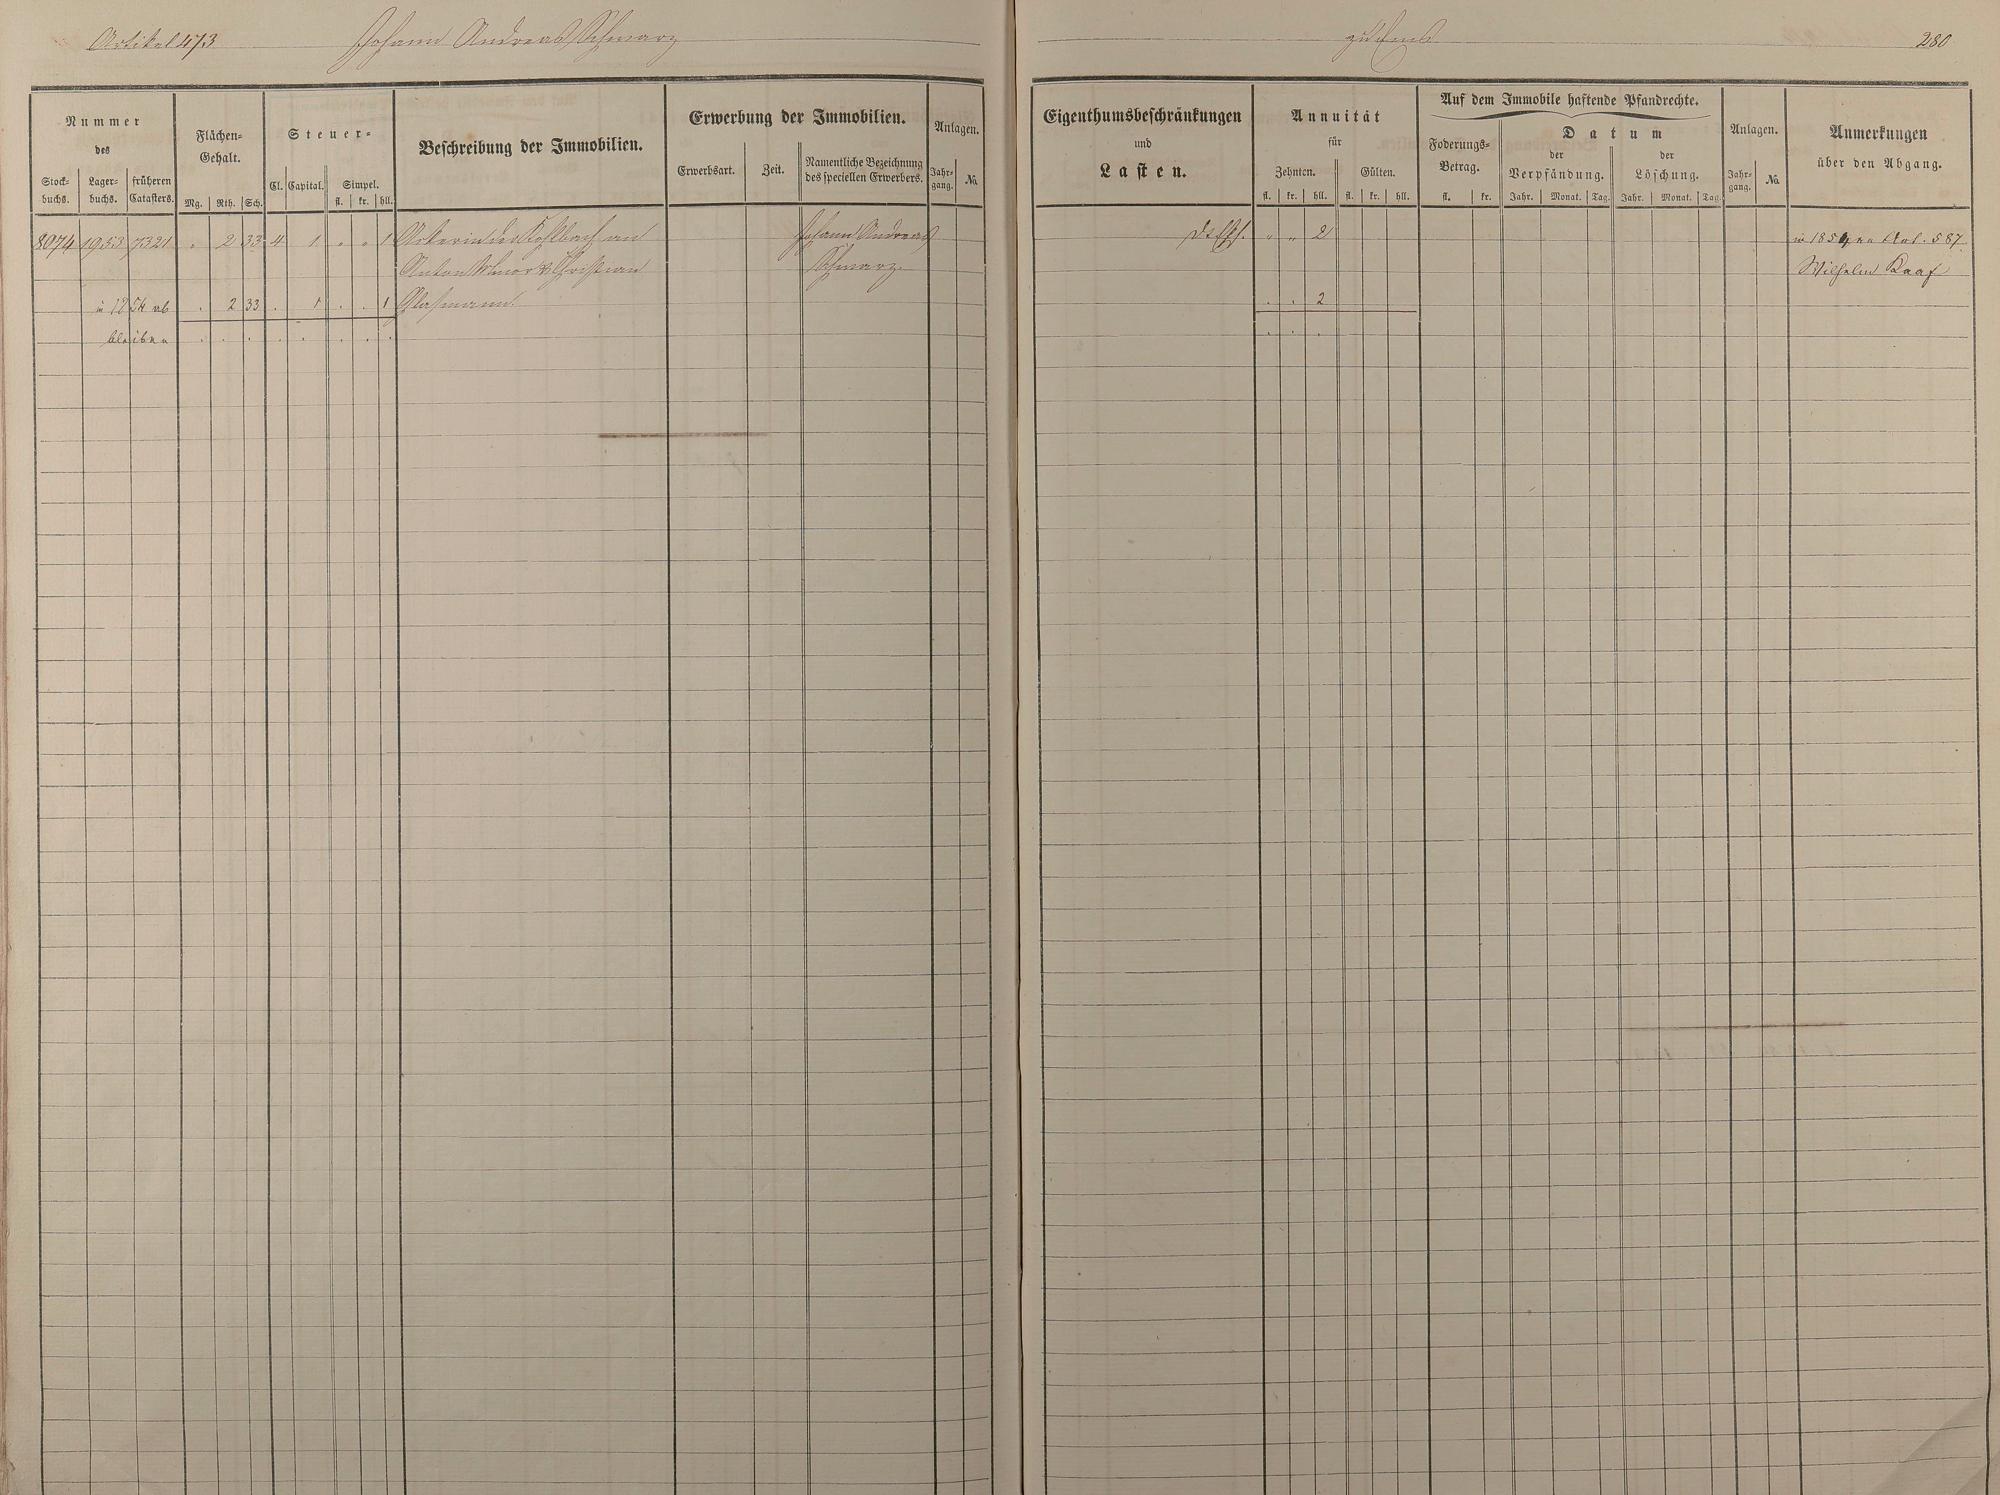 Artikel 473 Johann Andreas Schwarz zu Ems 280
Nummer
des
Stock-
buchs.
Lager-
buchs.
früheren
Catasters.
Flächen-
Gehalt.
Mg. Rth. Sch.
Steuer-
Cl. Capital. Simpel.
fl. kr. hll.
Beschreibung der Immobilien.
Erwerbung der Immobilien.
Erwerbsart. Zeit.
Namentliche Bezeichnung
des speciellen Erwerbers.
Anlagen.
Jahr-
gang.
No.
Eigenthumsbeschränkungen
und
Lasten.
Annuität
für
Zehnten. Gülten.
fl. kr. hll. fl. kr. hll.
Auf dem Immobile haftende Pfandrechte.
Foderungs-
Betrag.
fl. kr.
Datum
der
Verpfändung.
Jahr. Monat. Tag.
der
Löschung.
Jahr. Monat. Tag.
Anlagen.
Jahr-
gang.
No.
Anmerkungen
über den Abgang.
8074 1953 7321 " 2 33 4 1 " " 1 Acker in der Kohlbach an Johann Andreas " " 2 in 1854 an Art. 587
Anton Christian Schwarz. Wilhelm Raaf
in 1854 ab . 2 33 . 1 . . 1 Glasmann. . . 2
bleiben . . . . . . . . . . .